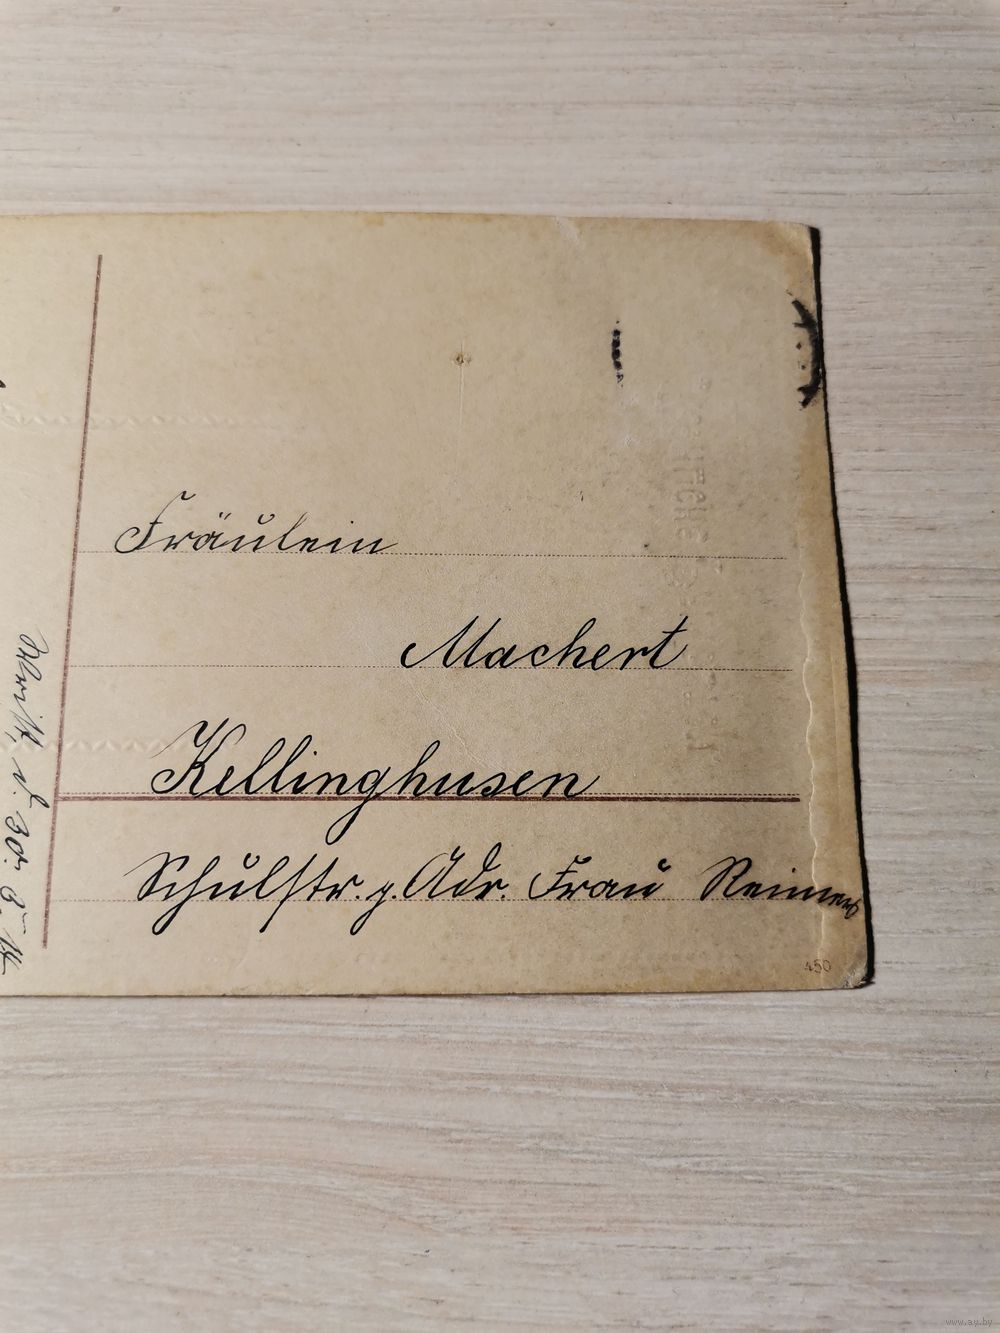 Fräulein
Machert
Kellinghusen
Schulstr. z. Adr. Frau Reimers
450
www.ay.by